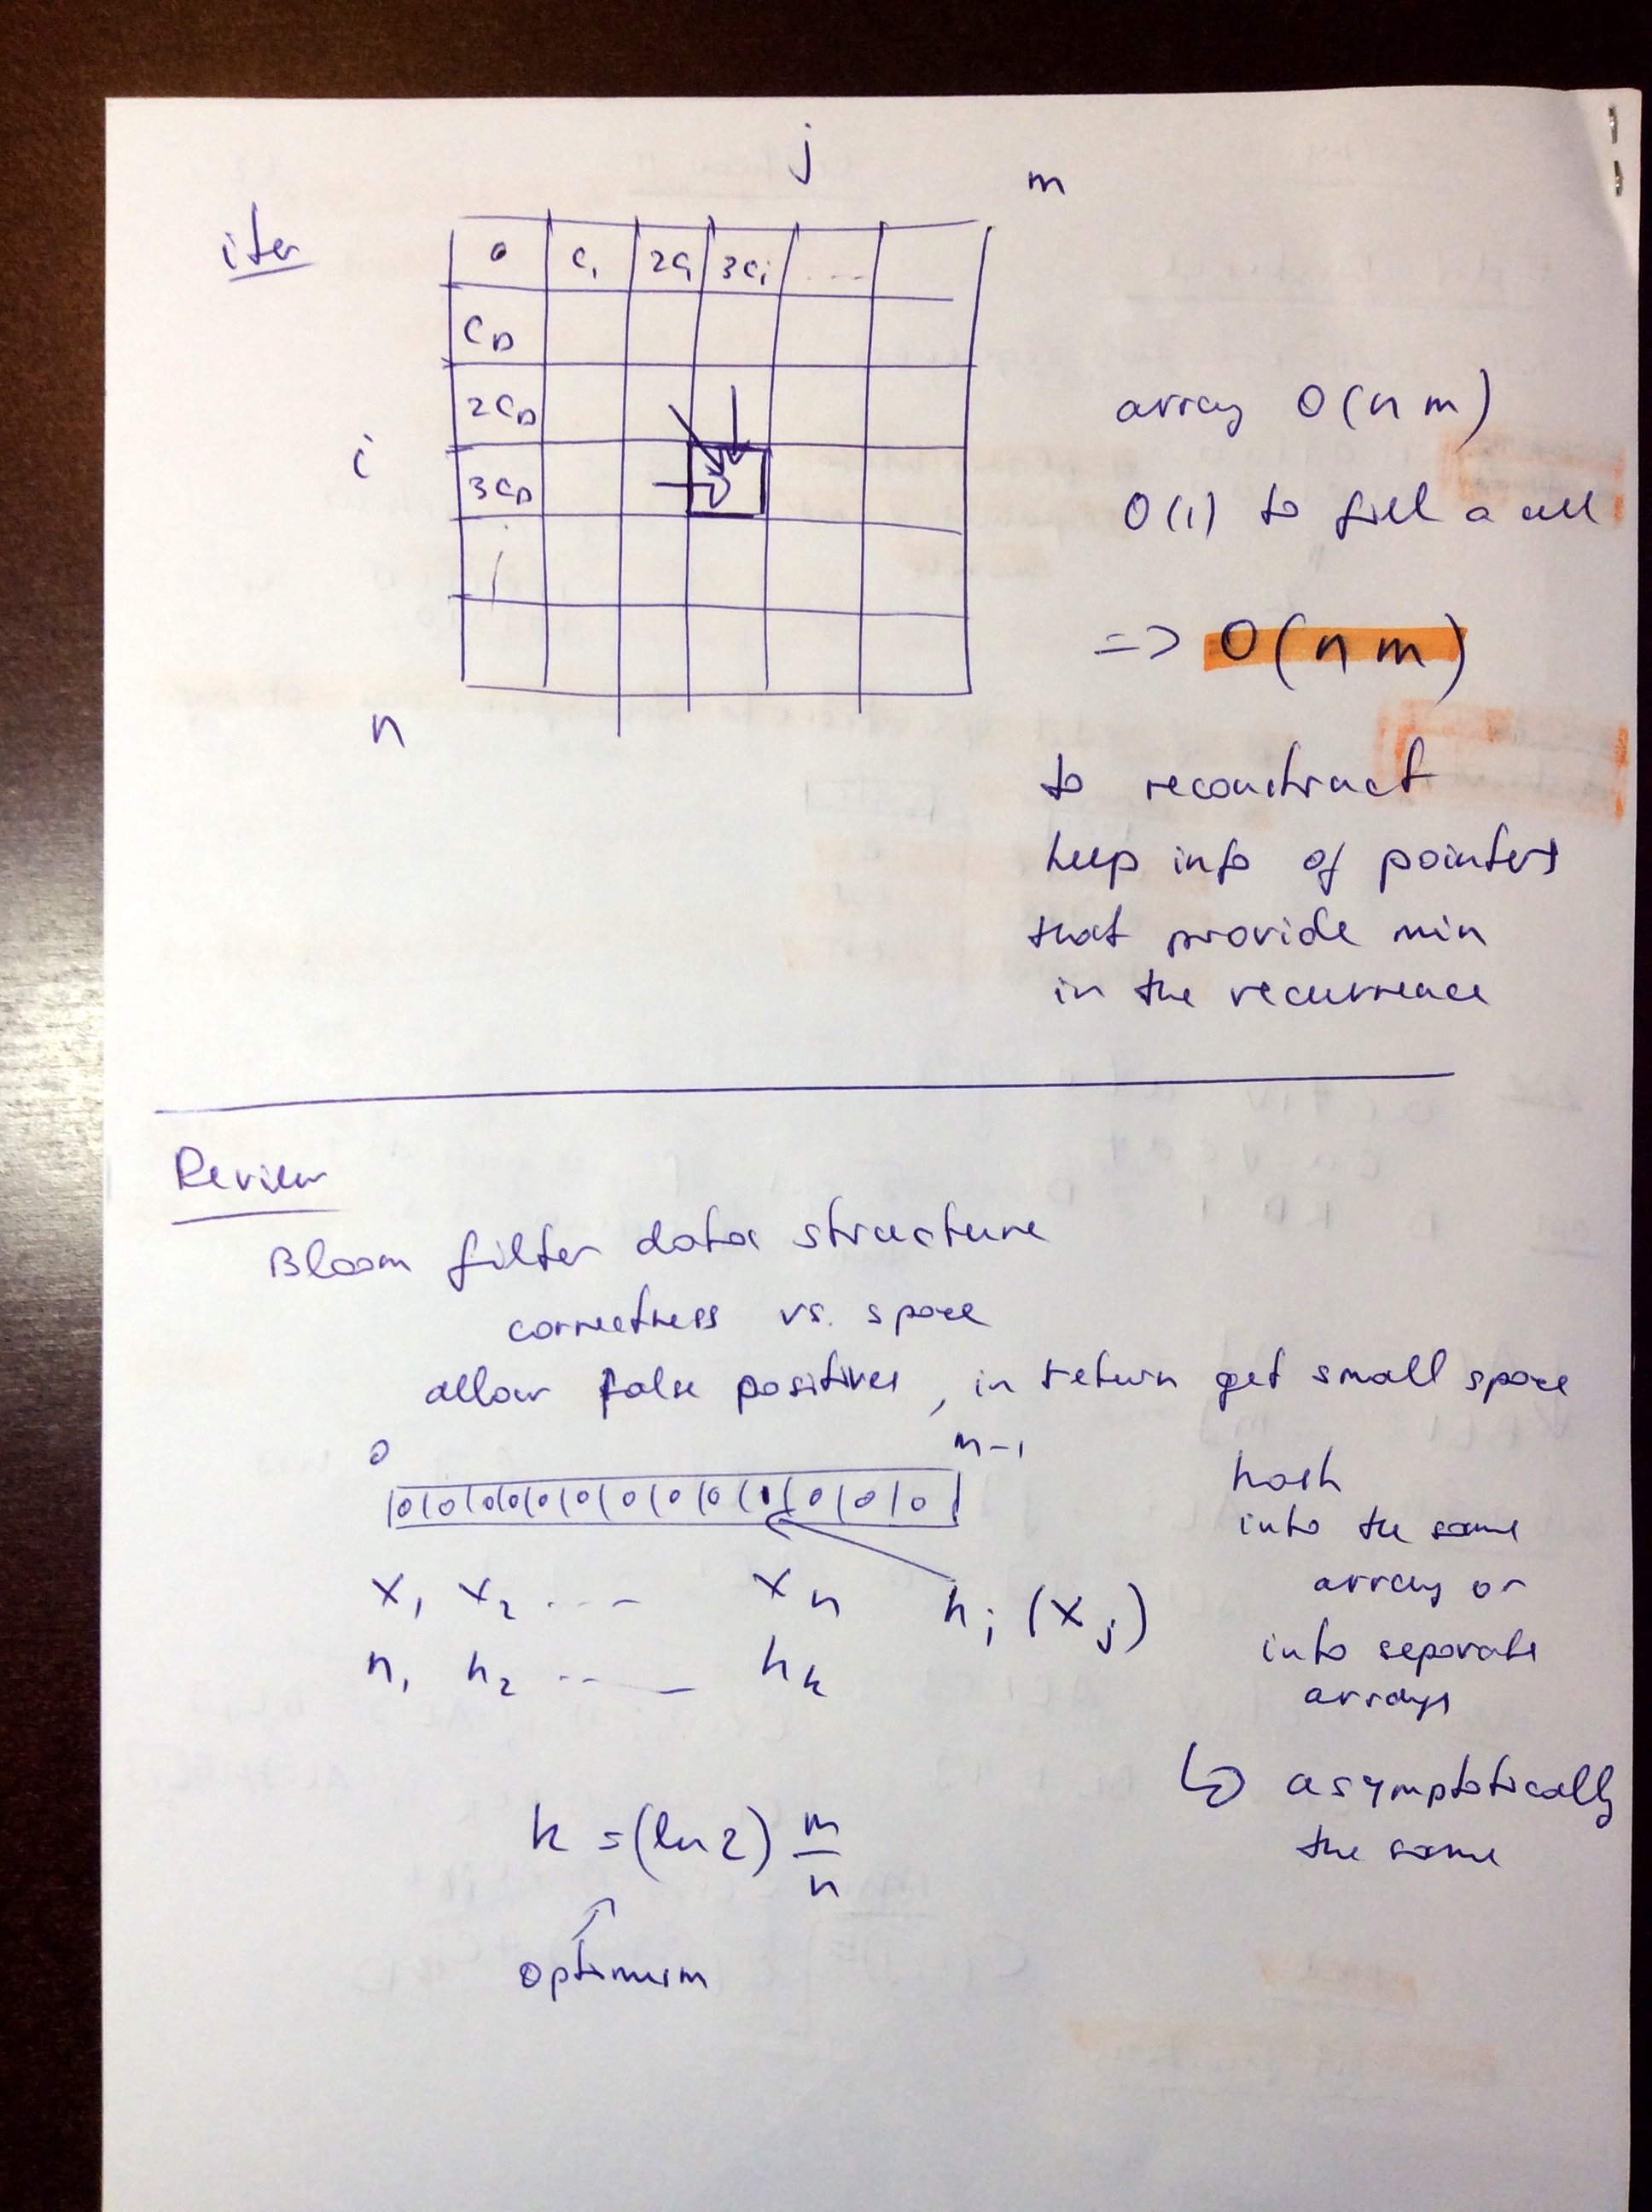 j
m
iter
0 c₁ 2c₁ 3c₁ ...
c_D
2c_D
i
3c_D
n
array O(n m)
O(1) to fill a cell
=> O(n m)
to reconstruct
keep info of pointers
that provide min
in the recurrence
Review
Bloom filter data structure
correctness vs. space
allow false positives, in return get small space
0 m-1
|0|0|0|0|0|0|0|0|0|1|0|0|0|
x₁ x₂ ... xₙ hᵢ(xⱼ)
h₁ h₂ ... hₖ
hash
into the same
array or
into separate
arrays
↳ asymptotically
the same
k = (ln 2) m/n
optimum